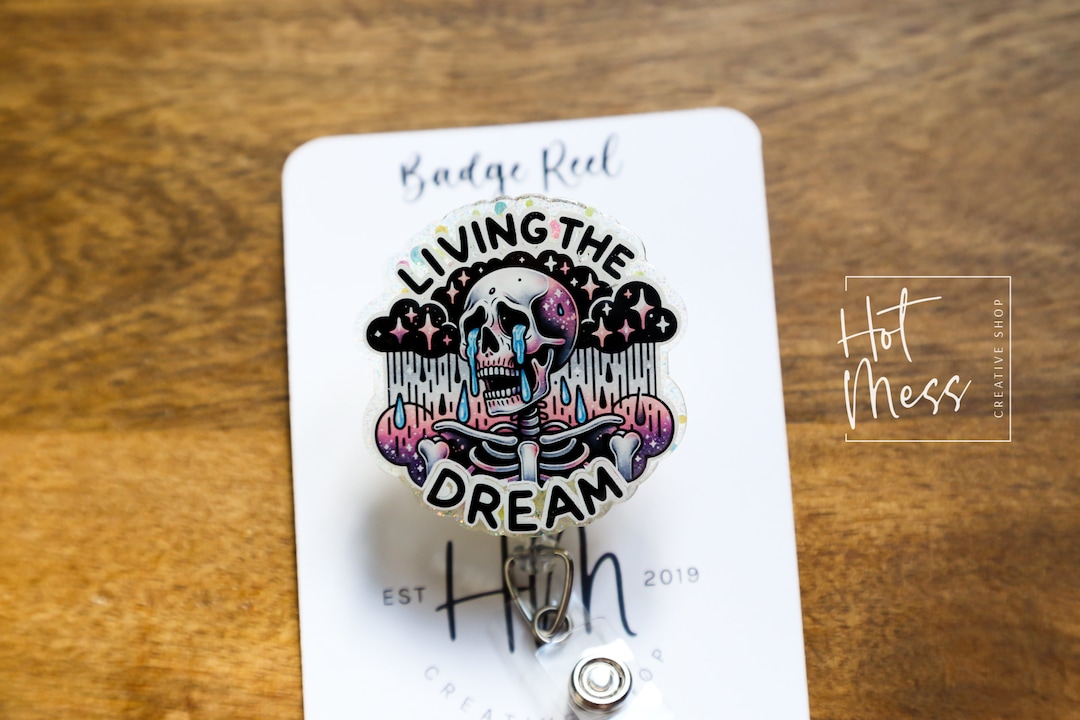 Badge Reel
LIVING THE
DREAM
EST
2019
Hot
Mess
CREATIVE SHOP